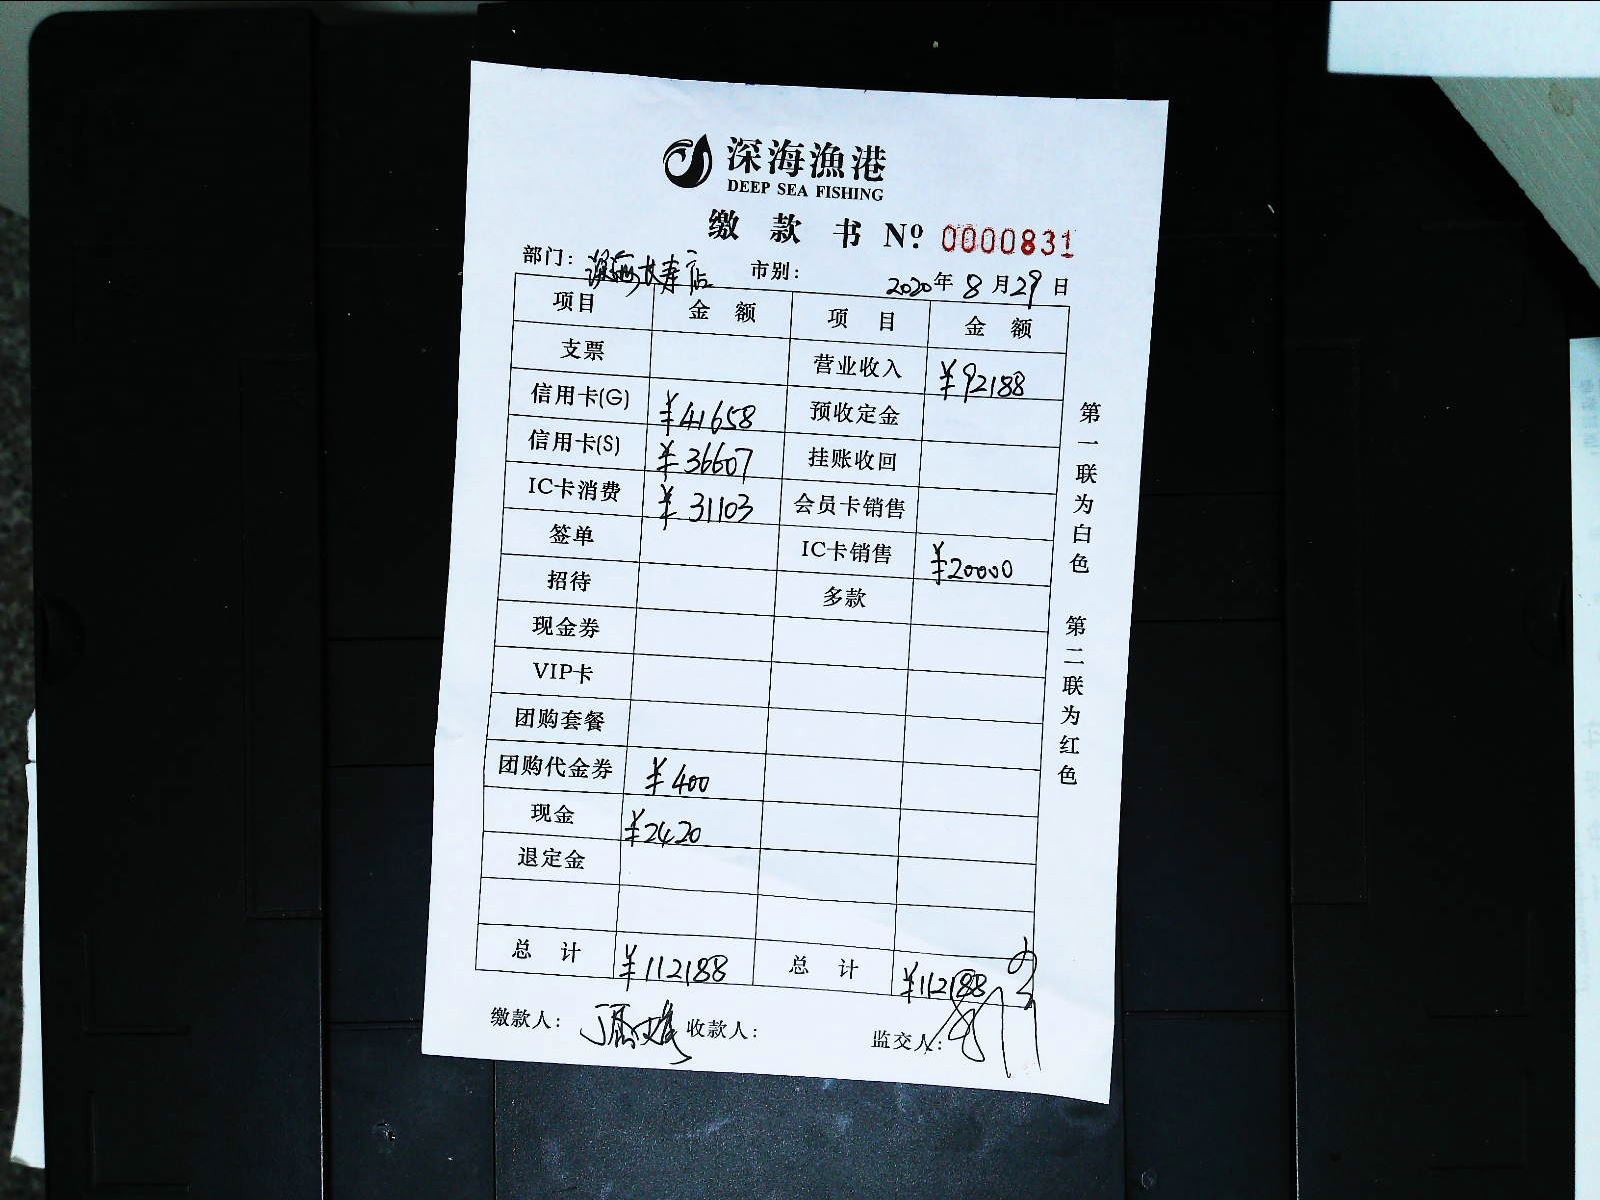 深海漁港
DEEP SEA FISHING
缴款书 Nº 0000831
部门: 长寿店 市别: 2020年8月29日
项目 金额 项目 金额
支票 营业收入 ¥92188
信用卡(G) ¥41658 预收定金
信用卡(S) ¥36607 挂账收回
IC卡消费 ¥31103 会员卡销售
签单 IC卡销售 ¥20000
招待 多款
现金券
VIP卡
团购套餐
团购代金券 ¥400
现金 ¥2420
退定金
总计 ¥112188 总计 ¥112188
缴款人: 收款人: 监交人:
第一联为白色 第二联为红色